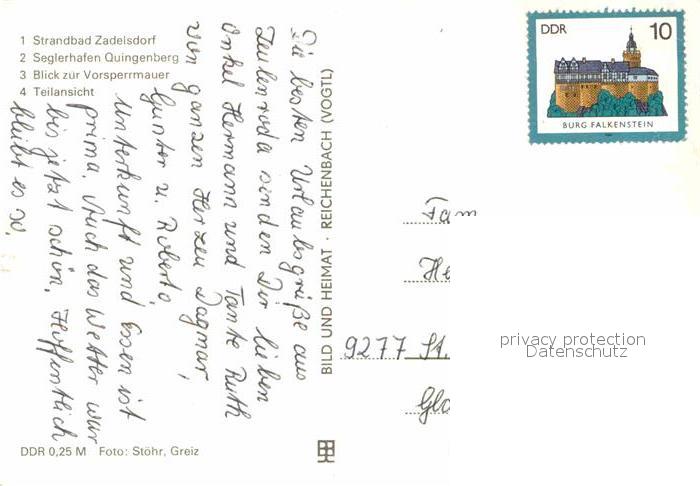 1 Strandbad Zadelsdorf
2 Seglerhafen Quingenberg
3 Blick zur Vorsperrmauer
4 Teilansicht
Die besten Urlaubsgrüße aus
Zeulenroda senden Dir lieben
Onkel Hermann und Tante Ruth
von ganzen Herzen Dagmar,
Gunter u. Roberto.
Unterkunft und Essen ist
prima. Auch das Wetter war
bis jetzt schön. Hoffentlich
bleibt es so.
DDR 0,25 M Foto: Stöhr, Greiz
BILD UND HEIMAT · REICHENBACH (VOGTL)
DDR 10
BURG FALKENSTEIN
Fam
He
9277 St.
Glo
privacy protection
Datenschutz